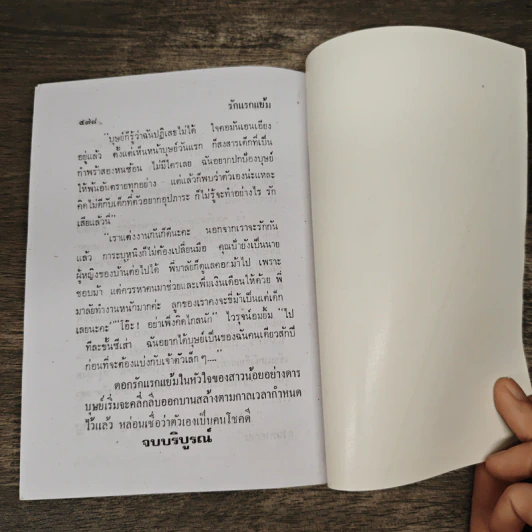 ๕๗๗ รักแรกแย้ม
"บุษย์ก็รู้ว่าฉันปฏิเสธไม่ได้ ใจคอมันเอนเอียง
อยู่แล้ว ตั้งแต่เห็นหน้าบุษย์วันแรก ก็สงสารเด็กที่เป็น
กำพร้าสองหนซ้อน ไม่มีใครเลย ฉันอยากปกป้องบุษย์
ให้พ้นอันตรายทุกอย่าง แต่แล้วก็พบว่าตัวเองน่ะแหละ
คิดไม่ดีกับเด็กที่ตัวอยากอุปการะ ก็ไม่รู้จะทำอย่างไร รัก
เสียแล้วนี่"
"เราแต่งงานกันก็ดีนะคะ นอกจากเราจะรักกัน
แล้ว การะบุหนิงก็ไม่ต้องเปลี่ยนมือ คุณป้ายังเป็นนาย
ผู้หญิงของบ้านต่อไปได้ พี่มาลัยก็ดูแลคอกม้าไป เพราะ
ชอบม้า แต่ควรหาคนมาช่วยและเพิ่มเงินเดือนให้ด้วย พี่
มาลัยทำงานหนักมากค่ะ ลูกของเราคงจะขี่ม้าเป็นแต่เด็ก
เลยนะคะ" "โอ๊ะ! อย่าเพิ่งคิดไกลนัก" ไวรุจน์อมยิ้ม "ไป
ทีละขั้นซีเล่า ฉันอยากได้บุษย์เป็นของฉันคนเดียวสักปี
ก่อนที่จะต้องแบ่งกับเจ้าตัวเล็กๆ...."
ดอกรักแรกแย้มในหัวใจของสาวน้อยอย่างดาร
บุษย์เริ่มจะคลี่กลีบออกบานสล้างตามกาลเวลากำหนด
ไว้แล้ว หล่อนเชื่อว่าตัวเองเป็นคนโชคดี
จบบริบูรณ์